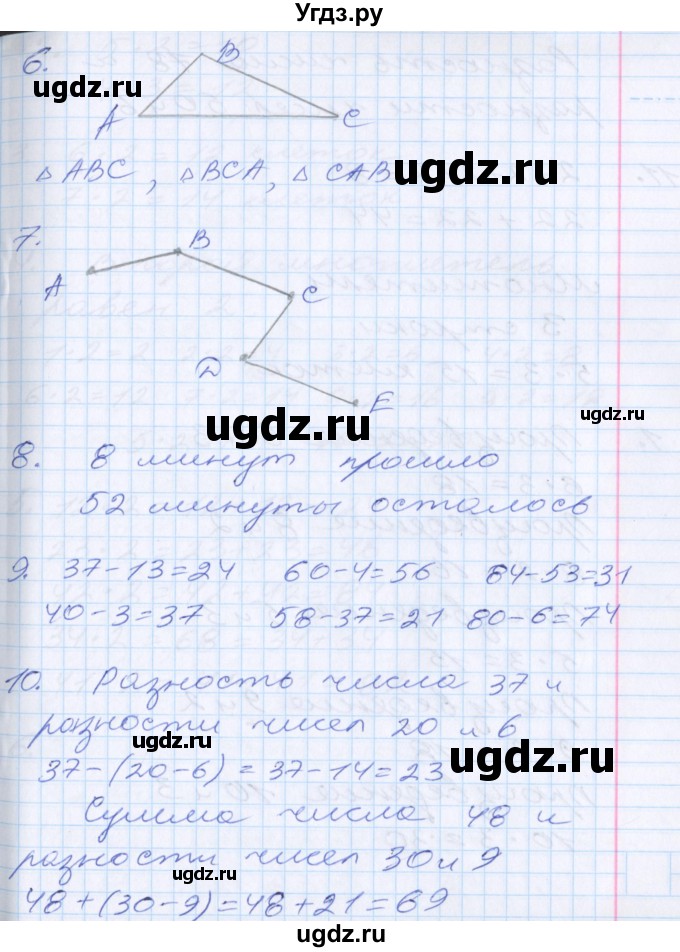 Угдз.ру
6.
B
ugdz.ru
A
C
ugdz.ru
△ ABC, △ BCA, △ CAB
7.
B
A
C
D
E
ugdz.ru
8. 8 минут прошло
52 минуты осталось
9. 37-13=24 60-4=56 84-53=31
40-3=37 58-37=21 80-6=74
10. Разность числа 37 и
разности чисел 20 и 6
ugdz.ru
ugdz.ru
37-(20-6)=37-14=23
Сумма числа 48 и
разности чисел 30 и 9
48+(30-9)=48+21=69
ugdz.ru
ugdz.ru
ugdz.ru